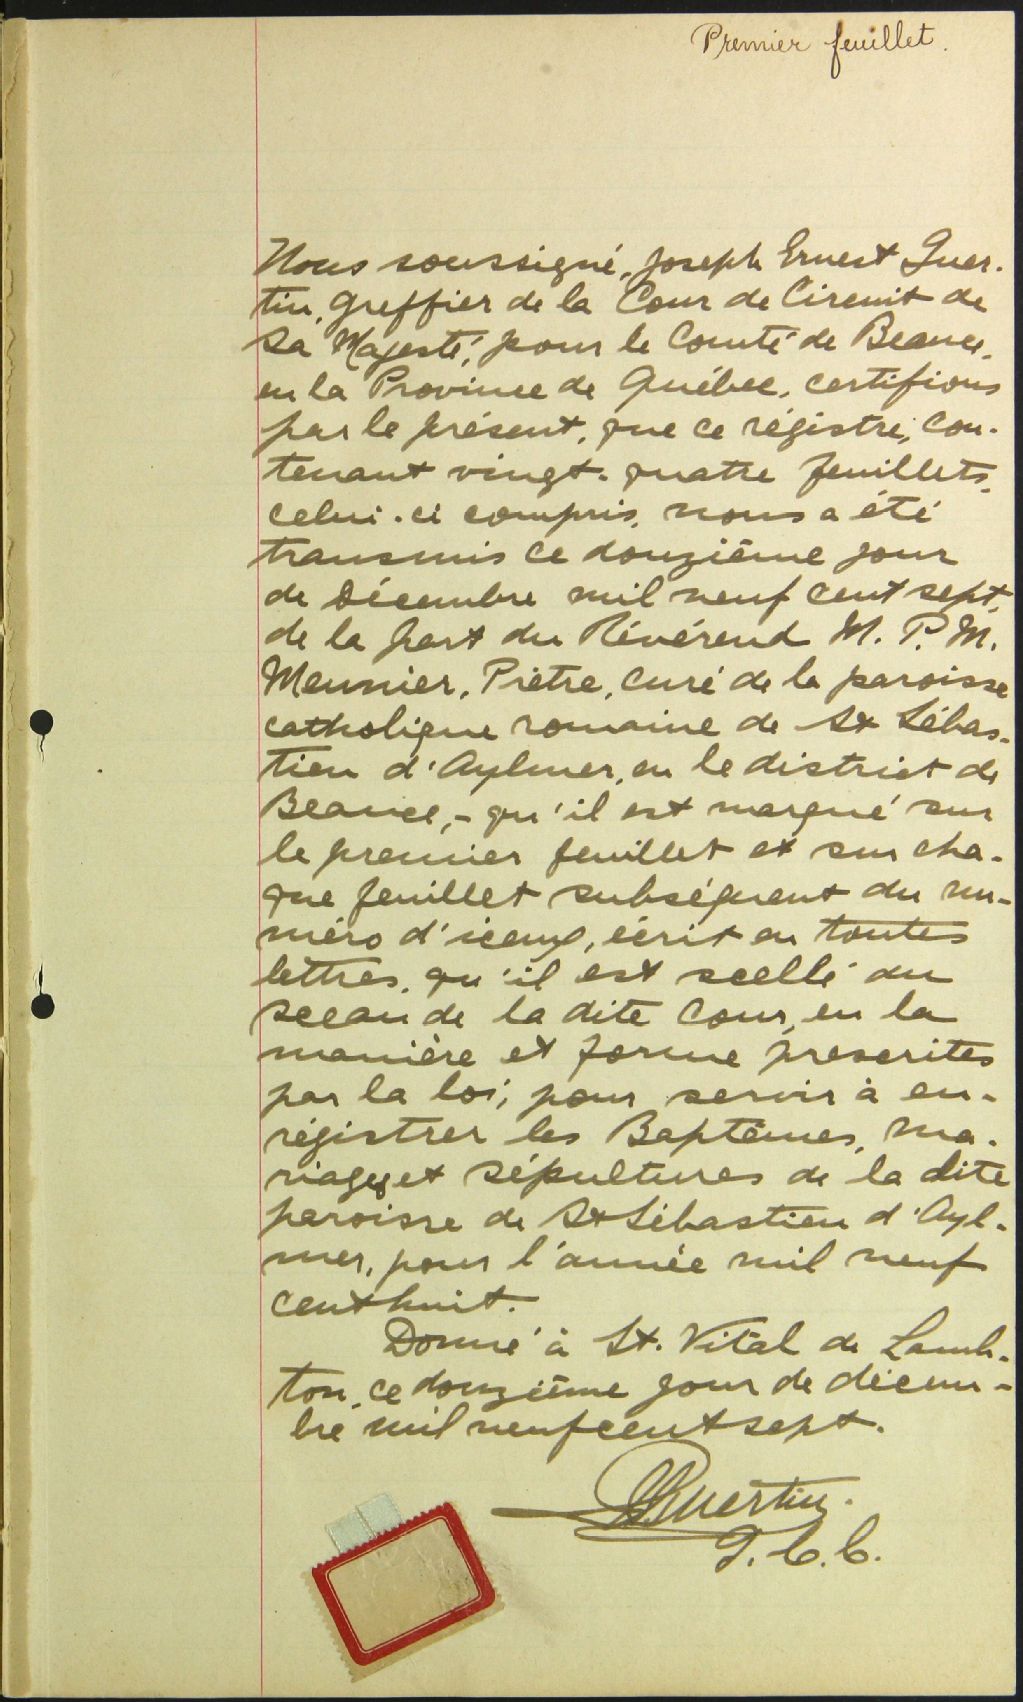 Premier feuillet.
Nous soussigné, Joseph Ernest Guer-
tin, Greffier de la Cour de Circuit de
Sa Majesté, pour le Comté de Beauce,
en la Province de Québec, certifions
par le présent, que ce régistre, con-
tenant vingt-quatre feuillets,
celui-ci compris, nous a été
transmis ce douzième jour
de Décembre mil neuf cent sept,
de la part du Révérend M. P. M.
Meunier, Prêtre, curé de la paroisse
catholique romaine de St Sébas-
tien d'Aylmer, en le district de
Beauce,- qu'il est marqué sur
le premier feuillet et sur cha-
que feuillet subséquent du nu-
méro d'iceux, écrit en toutes
lettres, qu'il est scellé du
sceau de la dite Cour, en la
manière et forme prescrites
par la loi; pour servir à en-
régistrer les Baptêmes, ma-
riages et sépultures de la dite
paroisse de St Sébastien d'Ayl-
mer, pour l'année mil neuf
cent huit.
Donné à St. Vital de Lamb-
ton, ce douzième jour de décem-
bre mil neuf cent sept.
Guertin.
G.C.C.